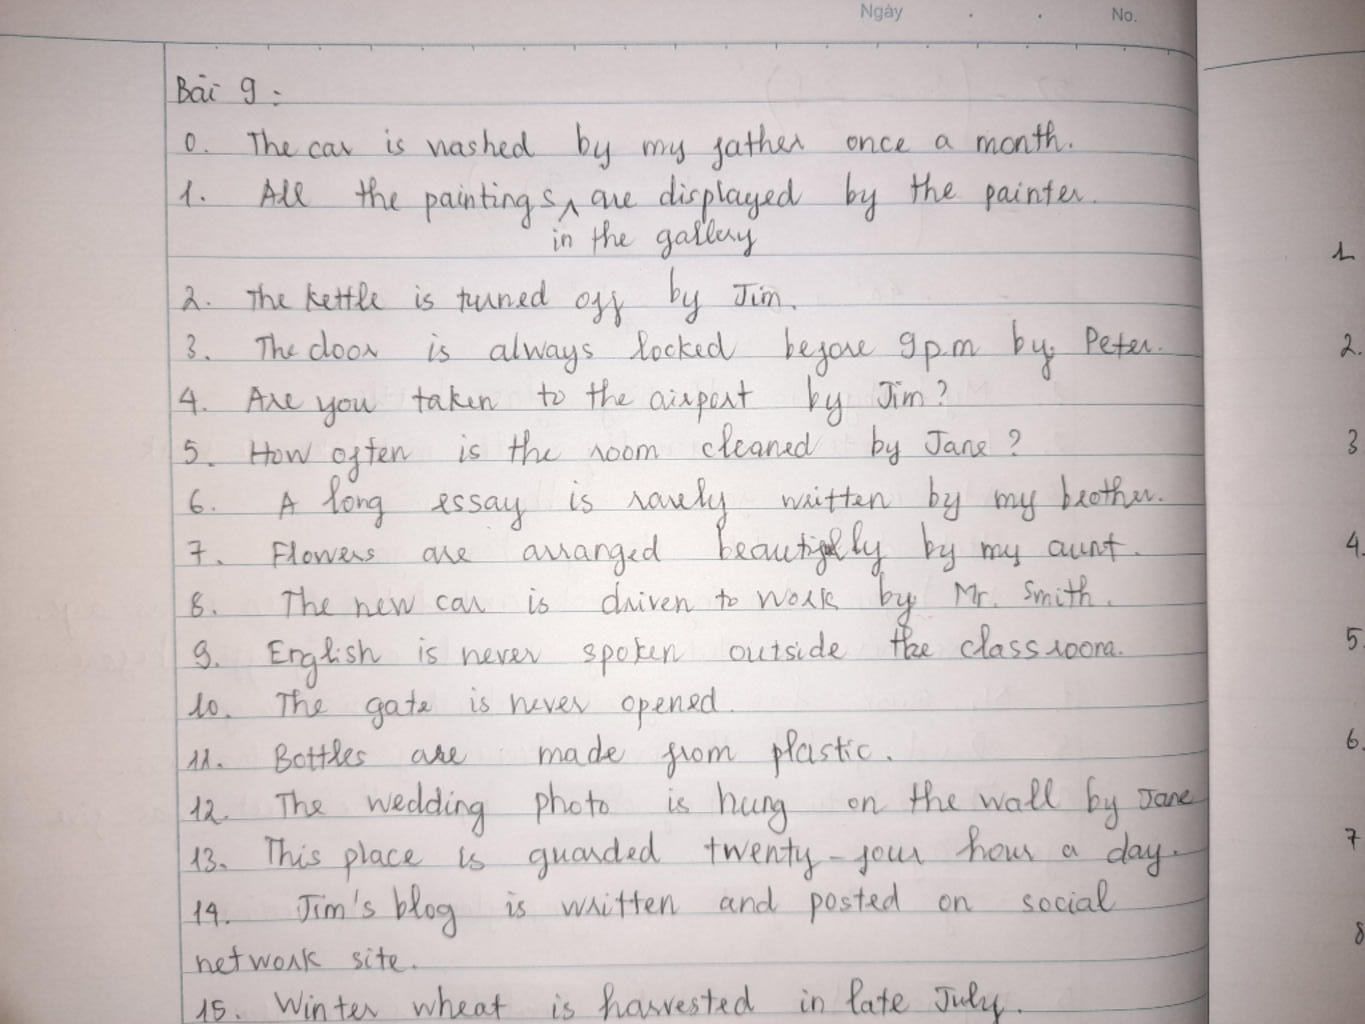 Ngày . . No.
Bài 9 :
0. The car is washed by my father once a month.
1. All the paintings ^ are displayed by the painter.
in the gallery
2. The kettle is turned off by Jim.
3. The door is always locked before 9p.m by Peter.
4. Are you taken to the airport by Jim?
5. How often is the room cleaned by Jane?
6. A long essay is rarely written by my brother.
7. Flowers are arranged beautifully by my aunt.
8. The new car is driven to work by Mr. Smith.
9. English is never spoken outside the classroom.
10. The gate is never opened.
11. Bottles are made from plastic.
12. The wedding photo is hung on the wall by Jane
13. This place is guarded twenty-four hour a day.
14. Jim's blog is written and posted on social
network site.
15. Winter wheat is harvested in late July.
1
2.
3
4.
5.
6.
7
8